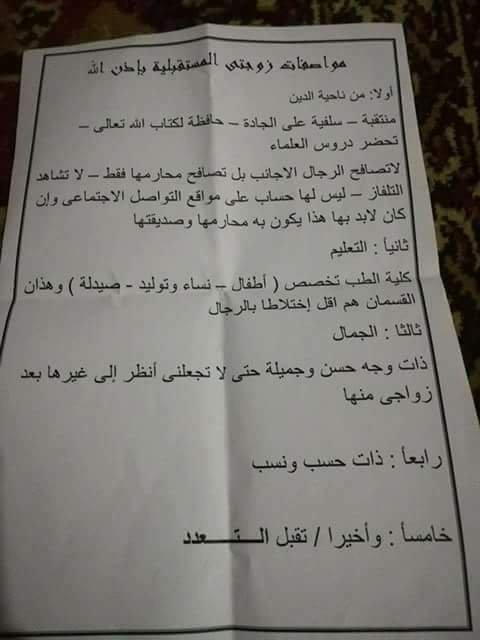 مواصفات زوجتى المستقبلية بإذن الله
أولا: من ناحية الدين
منتقبة – سلفية على الجادة – حافظة لكتاب الله تعالى –
تحضر دروس العلماء
لاتصافح الرجال الاجانب بل تصافح محارمها فقط – لا تشاهد
التلفاز – ليس لها حساب على مواقع التواصل الاجتماعى وإن
كان لابد بها هذا يكون به محارمها وصديقتها
ثانيأ : التعليم
كلية الطب تخصص ( أطفال – نساء وتوليد - صيدلة ) وهذان
القسمان هم اقل إختلاطا بالرجال
ثالثا : الجمال
ذات وجه حسن وجميلة حتى لا تجعلنى أنظر إلى غيرها بعد
زواجى منها
رابعأ : ذات حسب ونسب
خامسأ : وأخيرا / تقبل التـــعدد